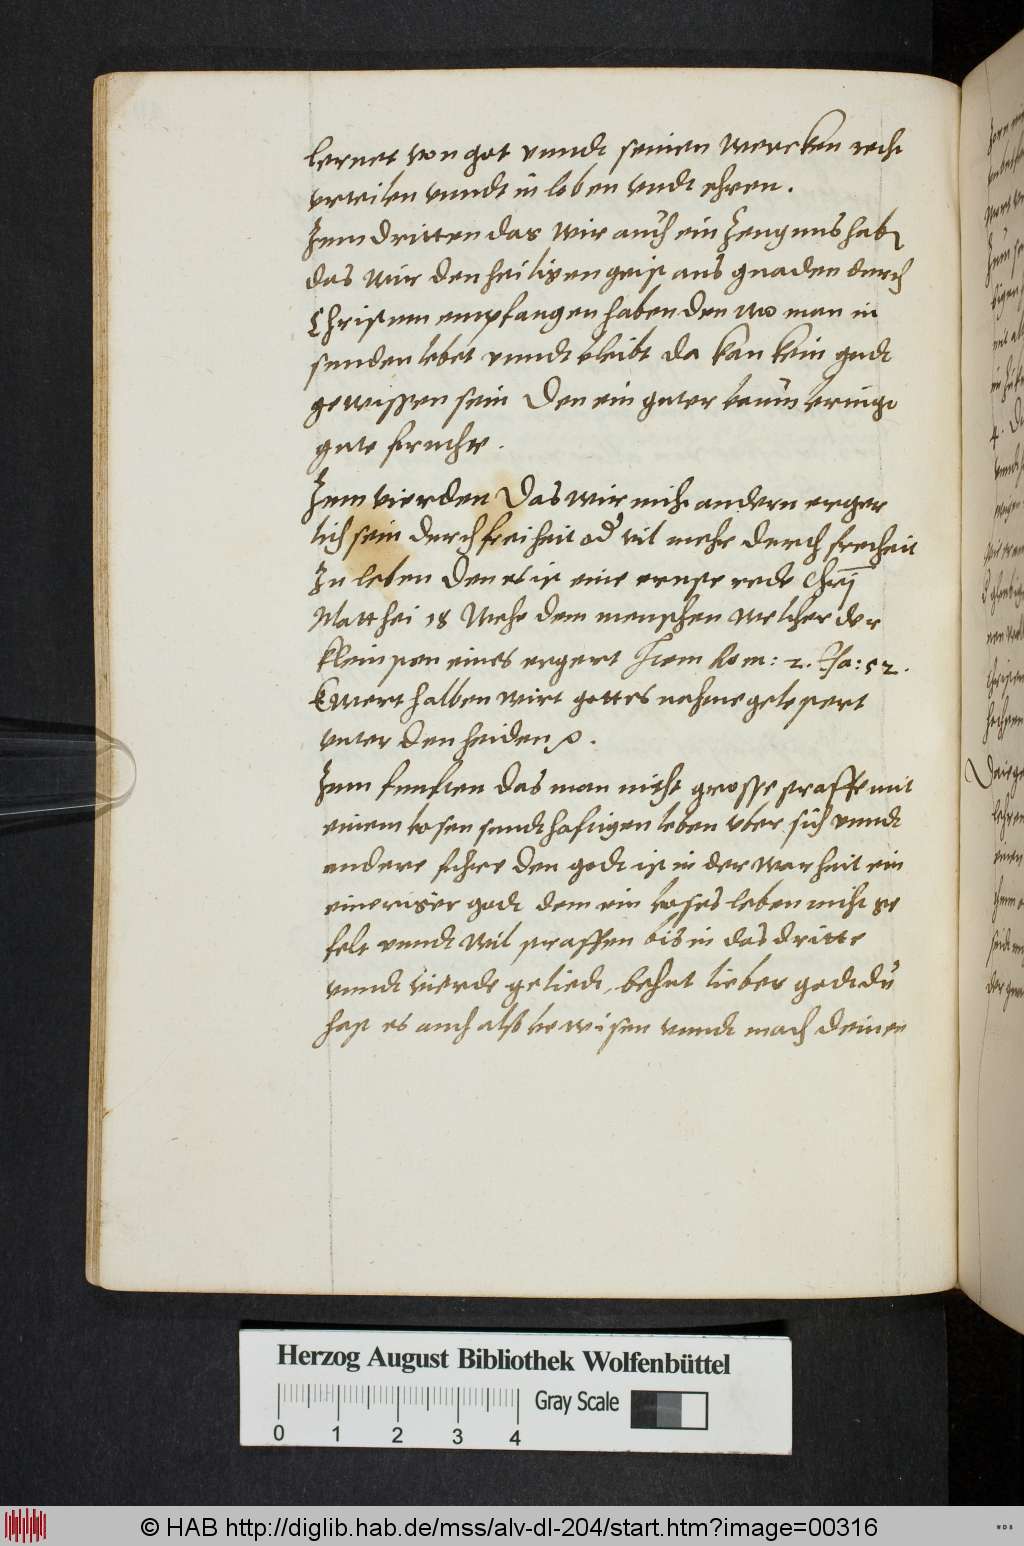 lernet von got vnndt seinen wercken recht
vrteilen vnndt in loben vndt ehren.
Zum dritten das wir auch ein Zeugnus habn
das wir den heiligen geist aus gnaden durch
Christum empfangen haben den wo man in
sunden lebet vnndt bleibt da kan kein gudt
gewissen sein Den ein guter baum bringt
gute fruchte.
Zum vierden Das wir nicht andern erger
lich sein durch freiheit od vil mehr durch frecheit
Zu leben Den es ist eine ernste rede Christi
Matthei 18 Wehe dem menschen welcher der
kleinsten eines ergert Item Rom: 2. Isa: 52.
Ewert halben wirt gottes nahme gelestert
vnter den heiden.
Zum funften das man nicht grosse straffe mit
einem bosen sundthaftigen leben vber sich vnndt
andere fuhre den godt ist in der warheit ein
eineriger godt dem ein boses leben nicht ge
felt vnndt wil straffen bis in das dritte
vnndt vierde geliedt, behut lieber godt du
hast es auch alß bewisen vnndt mach deinen
Herzog August Bibliothek Wolfenbüttel
Gray Scale
0 1 2 3 4
© HAB http://diglib.hab.de/mss/alv-dl-204/start.htm?image=00316